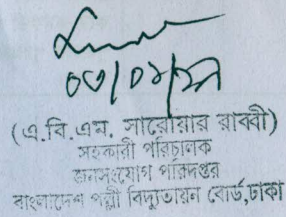 (এ.বি.এম. সারোয়ার রাব্বী)
সহকারী পরিচালক
জনসংযোগ পরিদপ্তর
বাংলাদেশ পল্লী বিদ্যুতায়ন বোর্ড,ঢাকা